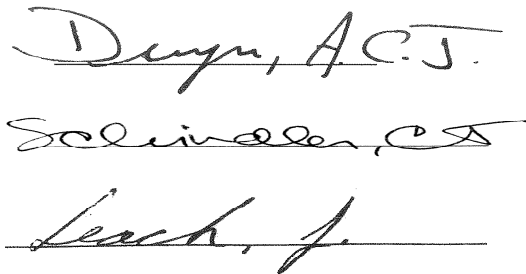 Dwyn, A.C.J.
Schindler, CJ
Leach, J.